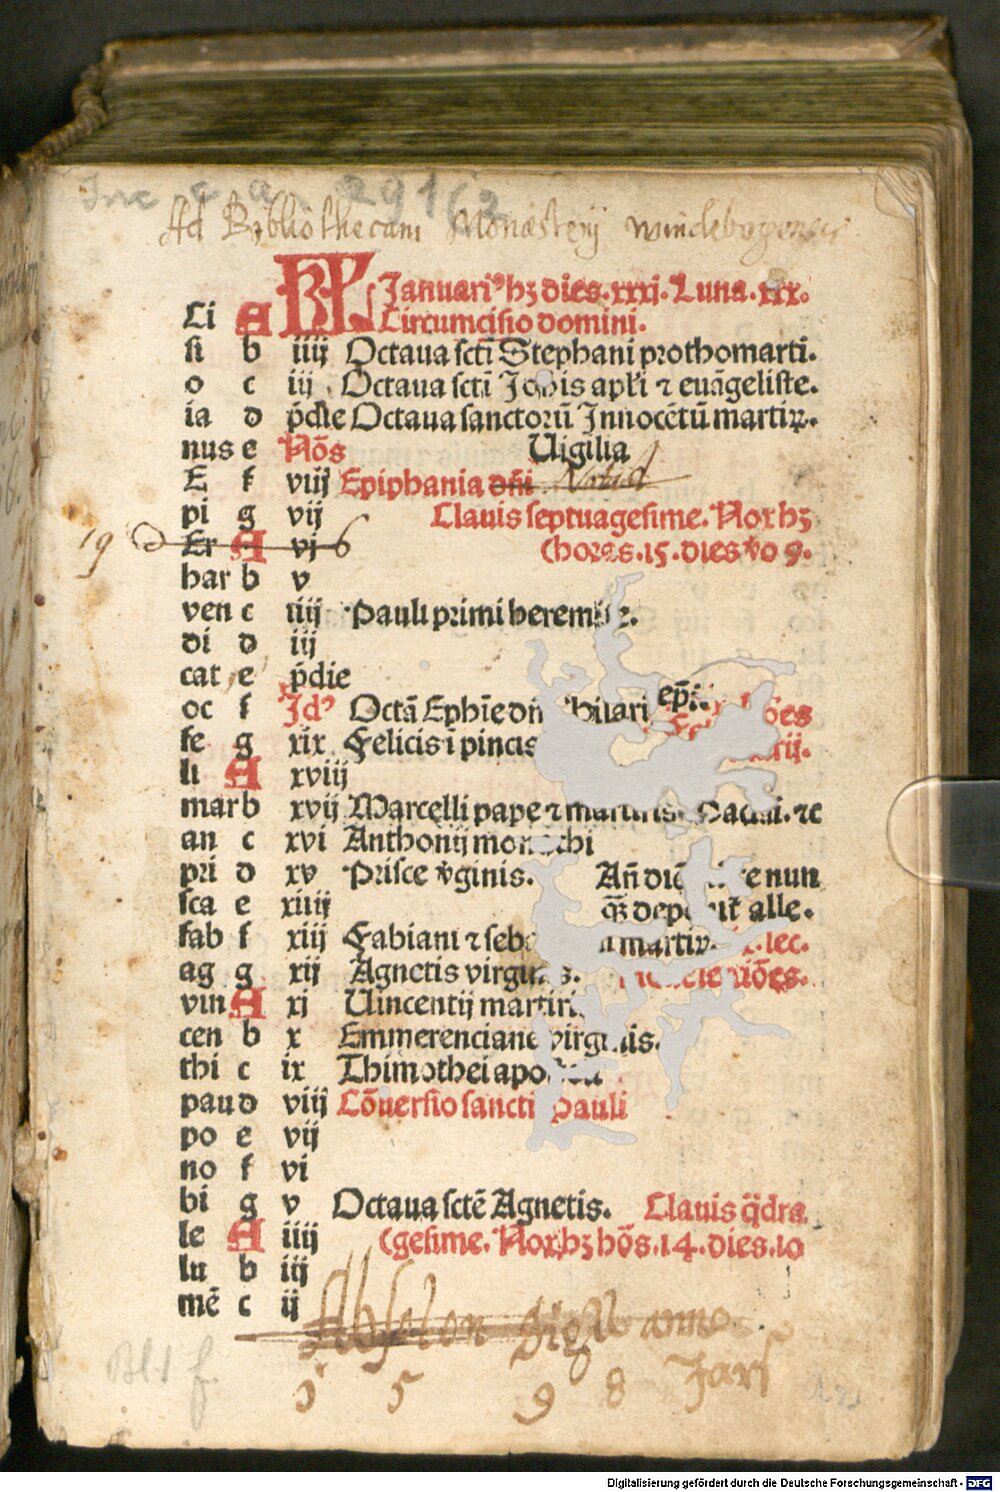 Inc c. a. 29162
Ad Bibliothecam Monasterij windebergensis
KL Januari⁹ hꝫ dies .xxxi. Luna .xxx.
Li A Circumcisio domini.
si b iiij Octaua scti Stephani prothomarti.
o c iij Octaua scti Johis apłi ⁊ euāgeliste.
ia d p̄die Octaua sanctorū Innocētū martiꝝ.
nus e Nōs Uigilia
E f viij Epiphania dn̄i
pi g vij Clauis septuagesime. Nox hꝫ
19 Er A vj 6 (hores .15. dies v̄o 9.
har b v
ven c iiij Pauli primi heremite.
di d iij
cat e p̄die
oc f Jd⁹ Octā Ephīe dn̄i hilari ep̄i. ōes
fe g xix Felicis ī pincis
li A xviij
mar b xvij Marcelli pape ⁊ martiris. ⁊c
an c xvi Anthonij monachi
pri d xv Prisce v̄ginis. Añ diē nun
sca e xiiij qꝫ alle.
fab f xiij Fabiani ⁊ seb martiꝝ. lec.
ag g xij Agnetis virginis. tiōes.
vin A xj Uincentij martiris
cen b x Emmerenciane virginis.
thi c ix Thimothei
pau d viij Cōuersio sancti Pauli
po e vij
no f vi
bi g v Octaua sctē Agnetis. Clauis q̄dra
le A iiij (gesime. Nox hꝫ hōs .14. dies .10
lu b iij
mē c ij
Absolon anno
1 5 9 8 Jars
Bl 1 f.
Digitalisierung gefördert durch die Deutsche Forschungsgemeinschaft - DFG